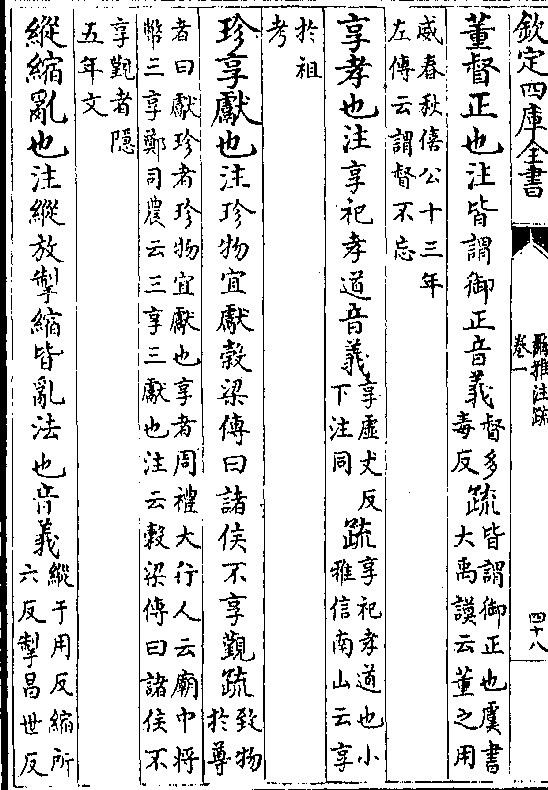 欽定四庫全書
爾雅注疏
卷一
四十八
董督正也注皆謂御正音義督多毒反疏皆謂御正也虞書大禹謨云董之用
威春秋僖公十三年左傳云謂督不忘
享孝也注享祀孝道音義享虛丈反下注同疏享祀孝道也小雅信南山云享
於祖考
珍享獻也注珍物宜獻榖梁傳曰諸侯不享覲疏致物於尊
者曰獻珍者珍物宜獻也享者周禮大行人云廟中將幣三享鄭司農云三享三獻也注云榖梁傳曰諸侯不
享覲者隱五年文
縱縮亂也注縱放掣縮皆亂法也音義縱子用反縮所六反掣昌世反